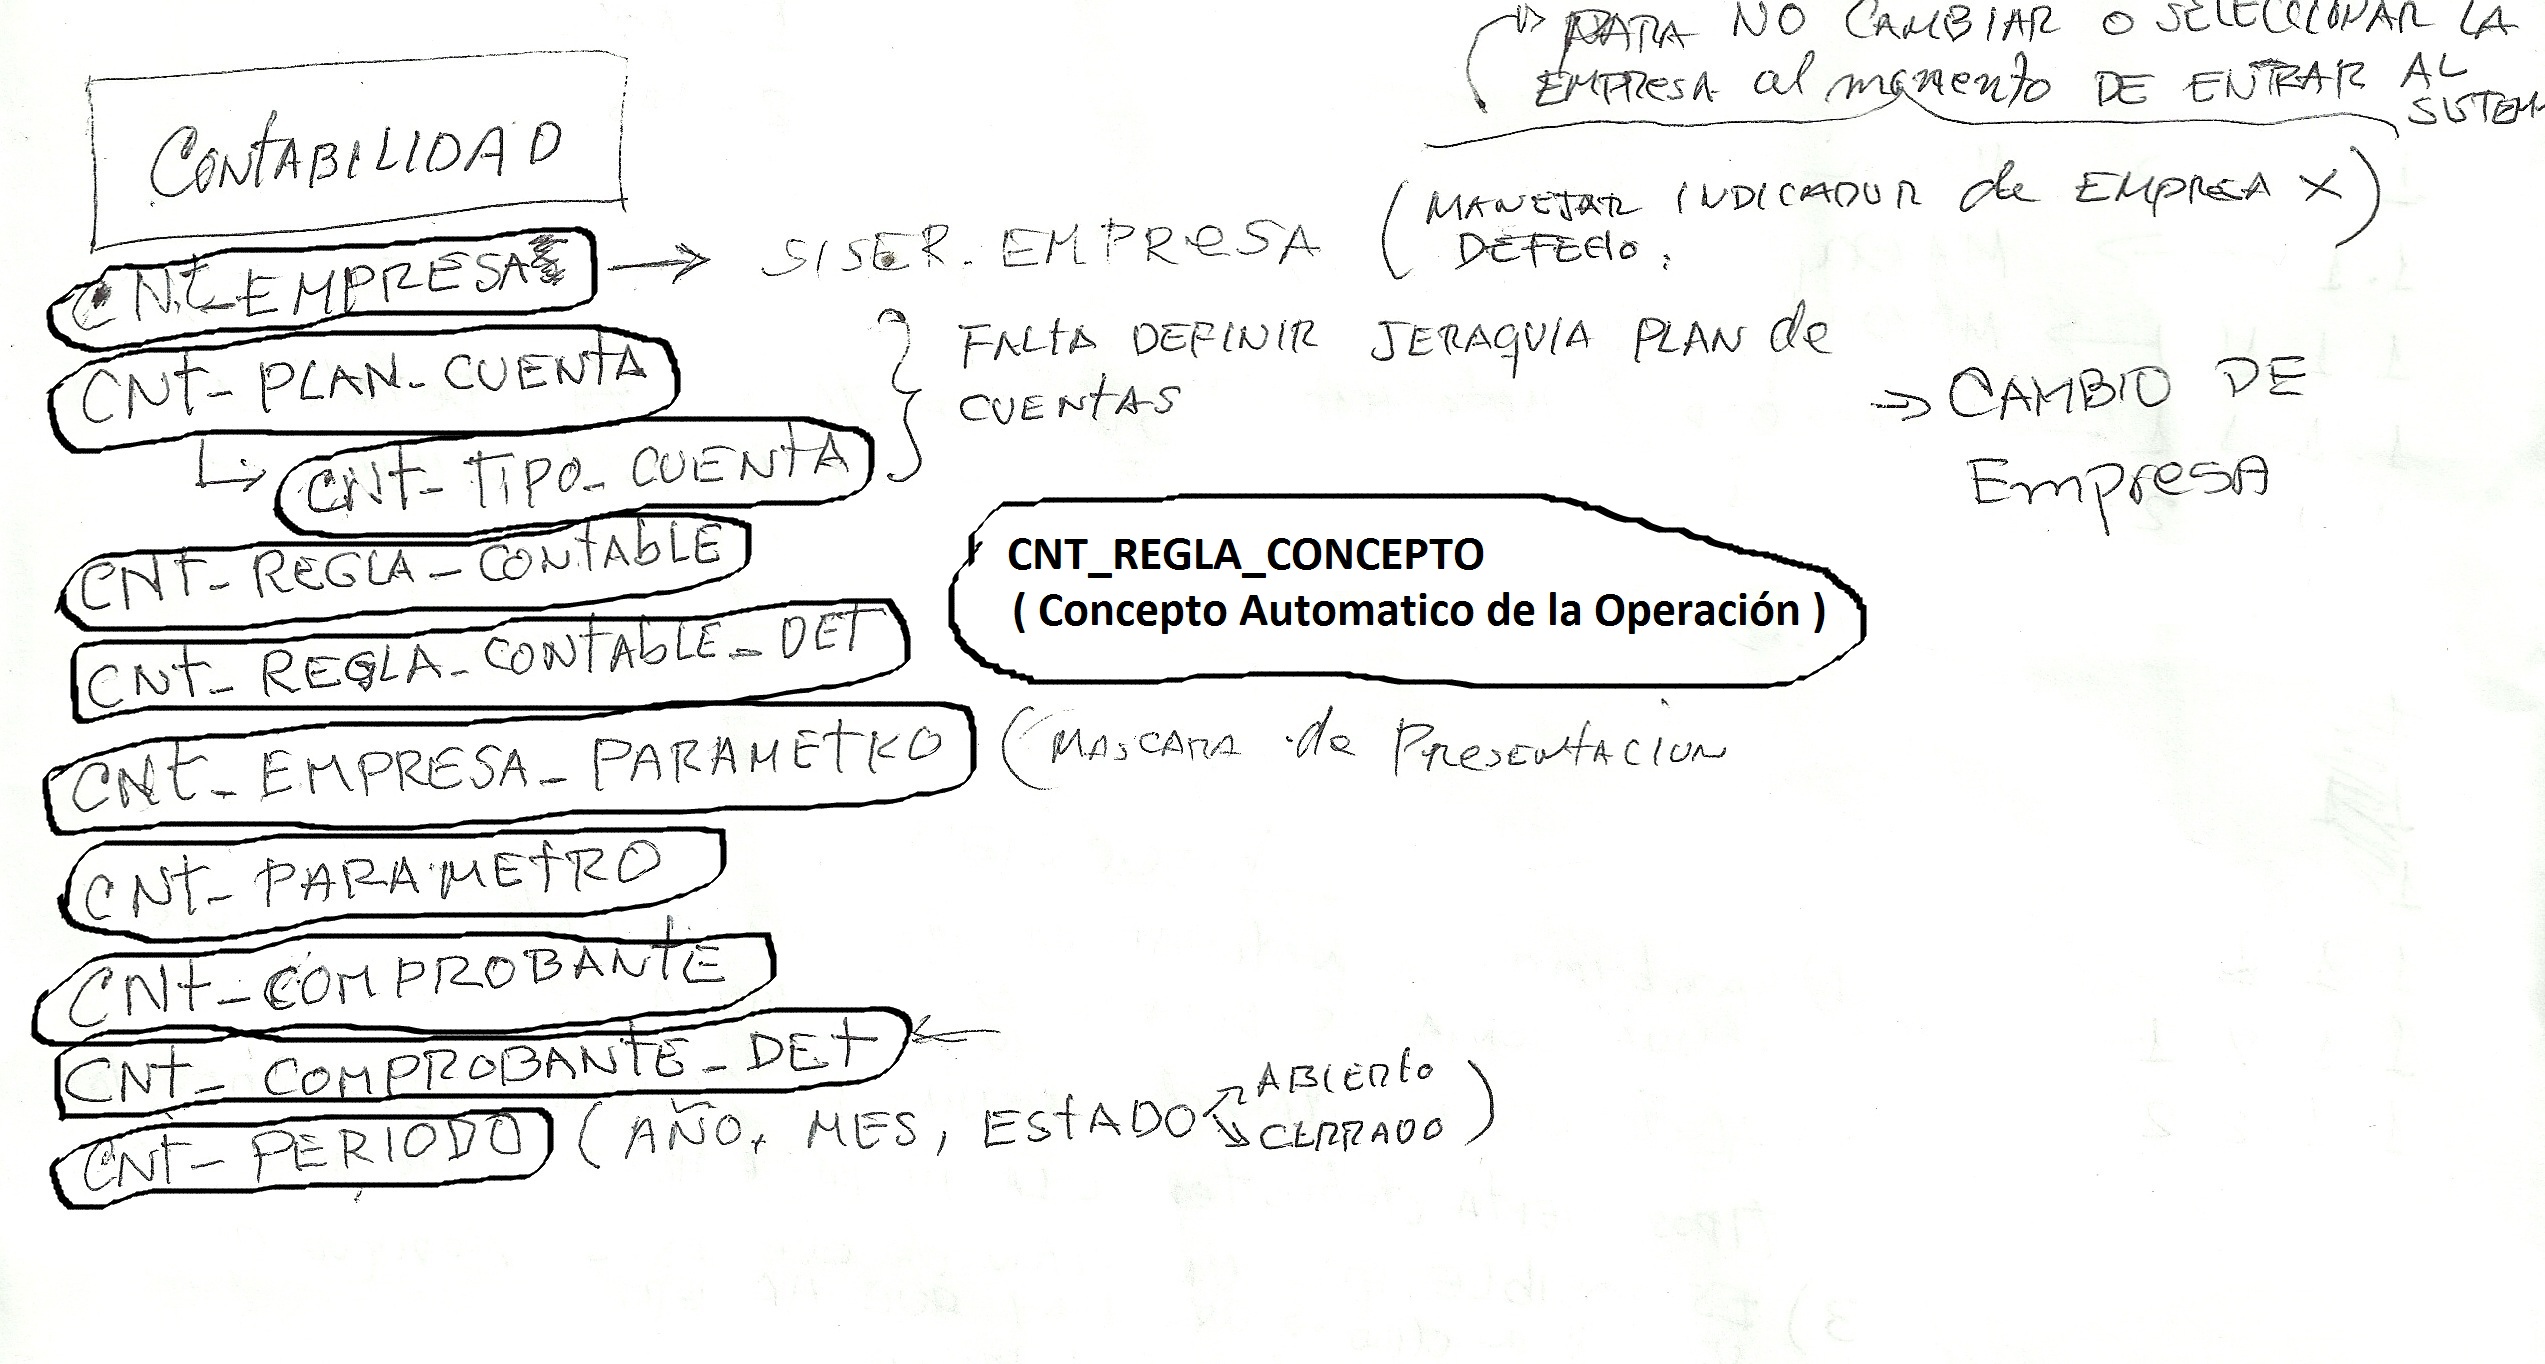 PARA NO CAMBIAR O SELECCIONAR LA
EMPRESA al momento DE ENTRAR AL
SISTEM
CONTABILIDAD
(MANEJAR INDICADOR de EMPREA X)
DEFECto.
CNt_EMPRESA → SISER_EMPRESA
CNt_PLAN_CUENtA
FALtA DEFINIR JERAQUIA PLAN de
CUENtAS
→ CAMBIO DE
EmpresA
CNt_TIPO_CUENtA
CNt_REGLA_CONtAbLE
CNT_REGLA_CONCEPTO
( Concepto Automatico de la Operación )
CNt_REGLA_CONtAbLE_DEt
CNt_EMPRESA_PARAMEtRO (MASCARA de PRESENtACION
CNt_PARAMEtRO
CNt_COMPROBANtE
CNt_COMPROBANtE_DEt ←
CNt_PERIODO (AÑO, MES, EStADO ABIERtO
CERRADO)